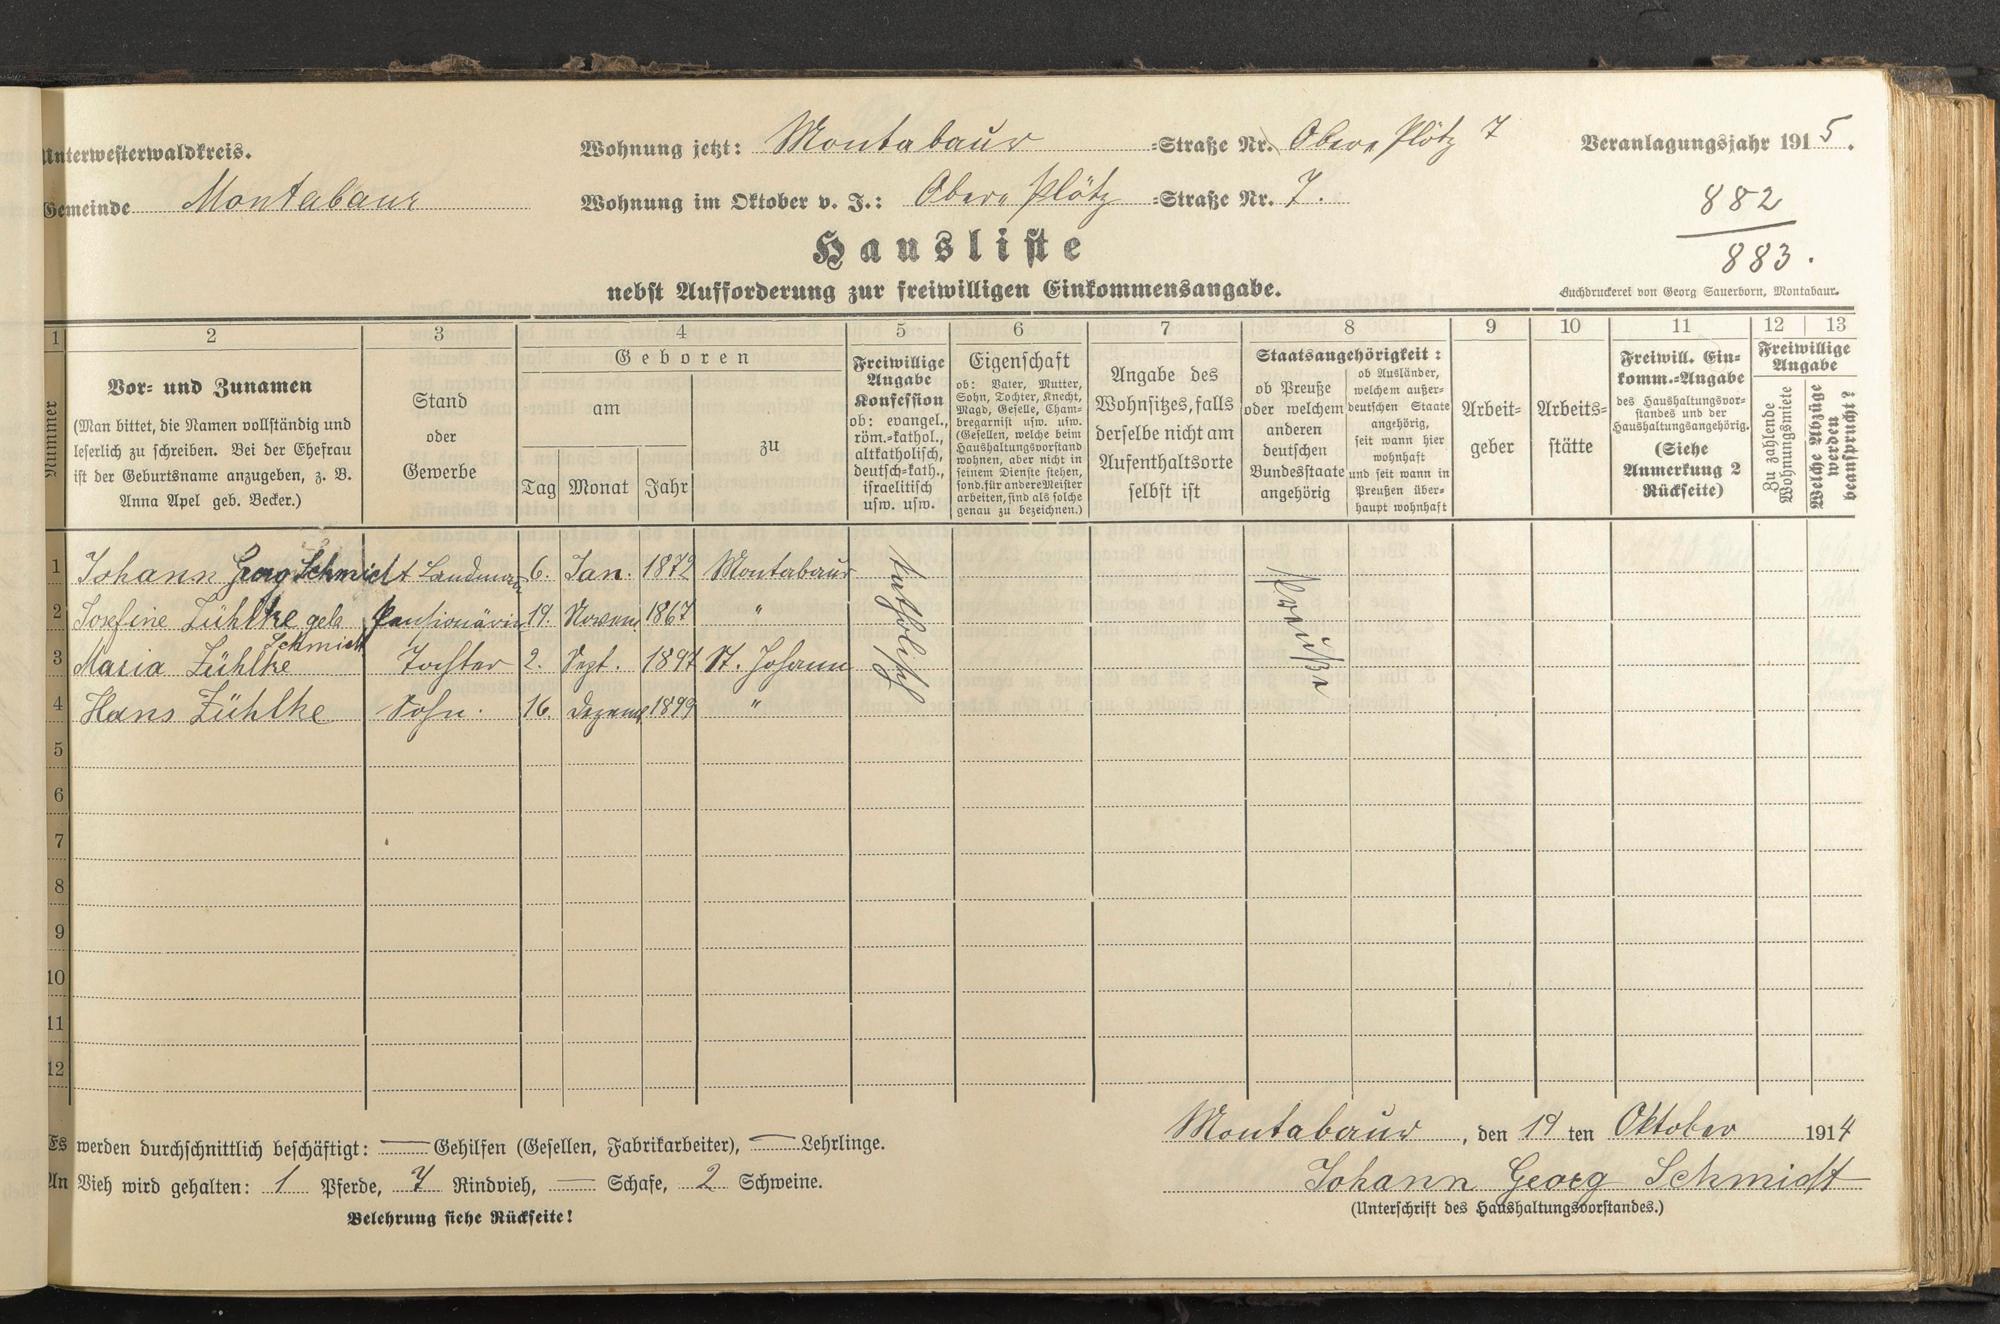 Unterwesterwaldkreis.
Wohnung jetzt: Montabaur =Straße Nr. Obere Plötz 7
Veranlagungsjahr 1915.
Gemeinde Montabaur
Wohnung im Oktober v. J.: Obere Plötz =Straße Nr. 7.
882
883.
Hausliste
nebst Aufforderung zur freiwilligen Einkommensangabe.
Buchdruckerei von Georg Sauerborn, Montabaur.
1 2 3 4 5 6 7 8 9 10 11 12 13
Nummer
Vor- und Zunamen
(Man bittet, die Namen vollständig und
leserlich zu schreiben. Bei der Ehefrau
ist der Geburtsname anzugeben, z. B.
Anna Apel geb. Becker.)
Stand
oder
Gewerbe
Geboren
am
Tag Monat Jahr
zu
Freiwillige
Angabe
Konfession
ob: evangel.,
röm.-kathol.,
altkatholisch,
deutsch-kath.,
israelitisch
usw. usw.
Eigenschaft
ob: Vater, Mutter,
Sohn, Tochter, Knecht,
Magd, Geselle, Cham-
bregarnist usw. usw.
(Gesellen, welche beim
Haushaltungsvorstand
wohnen, aber nicht in
seinem Dienste stehen,
sond. für andere Meister
arbeiten, sind als solche
genau zu bezeichnen.)
Angabe des
Wohnsitzes, falls
derselbe nicht am
Aufenthaltsorte
selbst ist
Staatsangehörigkeit:
ob Preuße
oder welchem
anderen
deutschen
Bundesstaate
angehörig
ob Ausländer,
welchem außer-
deutschen Staate
angehörig,
seit wann hier
wohnhaft
und seit wann in
Preußen über-
haupt wohnhaft
Arbeit-
geber
Arbeits-
stätte
Freiwill. Ein-
komm.-Angabe
des Haushaltungsvor-
standes und der
Haushaltungsangehörig.
(Siehe
Anmerkung 2
Rückseite)
Freiwillige
Angabe
Zu zahlende
Wohnungsmiete
Welche Abzüge
werden
beansprucht?
1 Johann Georg Schmidt Landmann 6. Jan. 1872 Montabaur
2 Josefine Zühlke geb. Pensionärin 19. Novem 1867 "
Schmidt
3 Maria Zühlke Tochter 2. Sept. 1897 St. Johann
4 Hans Zühlke Sohn. 16. Dezemb 1899 "
katholisch
Preuße
5
6
7
8
9
10
11
12
Montabaur, den 19 ten Oktober 1914
Es werden durchschnittlich beschäftigt: — Gehilfen (Gesellen, Fabrikarbeiter), — Lehrlinge.
An Vieh wird gehalten: 1 Pferde, 7 Rindvieh, — Schafe, 2 Schweine.
Johann Georg Schmidt
(Unterschrift des Haushaltungsvorstandes.)
Belehrung siehe Rückseite!